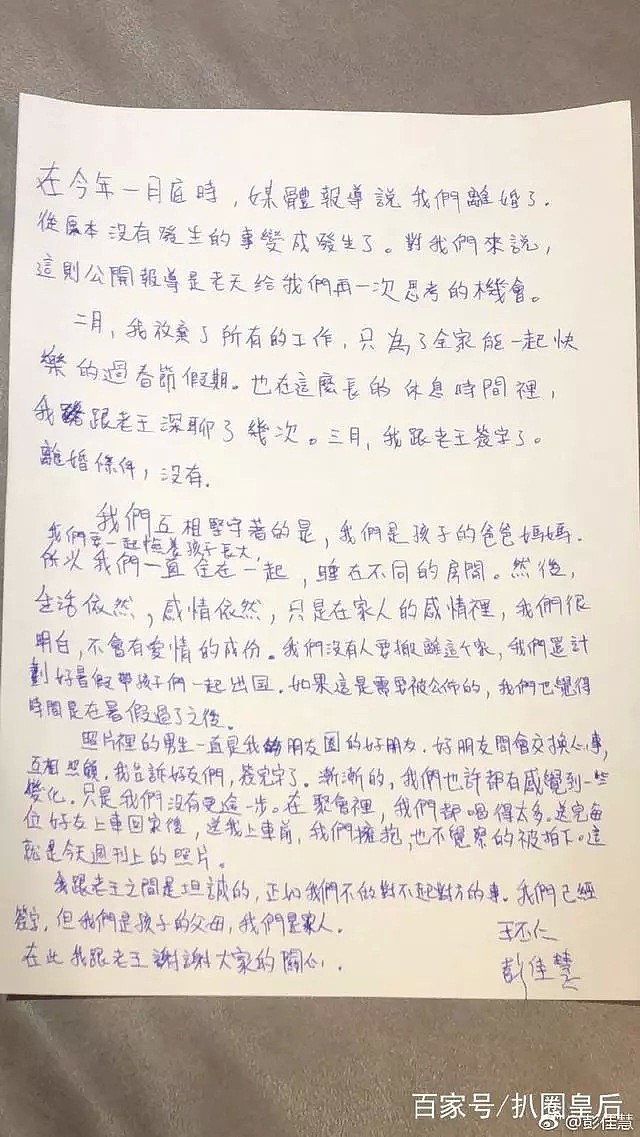 在今年一月底時，媒體報導說我們離婚了．
從原本沒有發生的事變成發生了。對我們來說，
這則公開報導是老天給我們再一次思考的機會。
二月，我放棄了所有的工作，只為了全家能一起快
樂的過春節假期。也在這麼長的休息時間裡，
我跟老王深聊了幾次。三月，我跟老王簽字了。
離婚條件，沒有．
我們互相堅守著的是，我們是孩子的爸爸媽媽．
我們要一起陪著孩子長大，
所以我們一直住在一起，睡在不同的房間。然後，
生活依然，感情依然，只是在家人的感情裡，我們很
明白，不會有愛情的成份。我們沒有人要搬離這个家，我們還計
劃好暑假帶孩子們一起出国．如果這是需要被公佈的，我們也覺得
時間是在暑假過了之後。
照片裡的男生一直是我朋友圈的好朋友．好朋友間會交換心事，
互相照顧．我告訴好友們，簽完字了。漸漸的，我們也許都有感覺到一些
變化．只是我們沒有更進一步。在聚會裡，我們都喝得太多。送完每
位好友上車回家後，送我上車前，我們擁抱，也不覺察的被拍下。這
就是今天週刊上的照片。
我跟老王之間是坦誠的，正如我們不做對不起對方的事．我們已經
簽字．但我們是孩子的父母，我們是家人．
王丕仁
在此我跟老王謝謝大家的關心．
彭佳慧
百家号/扒圈皇后
@彭佳慧